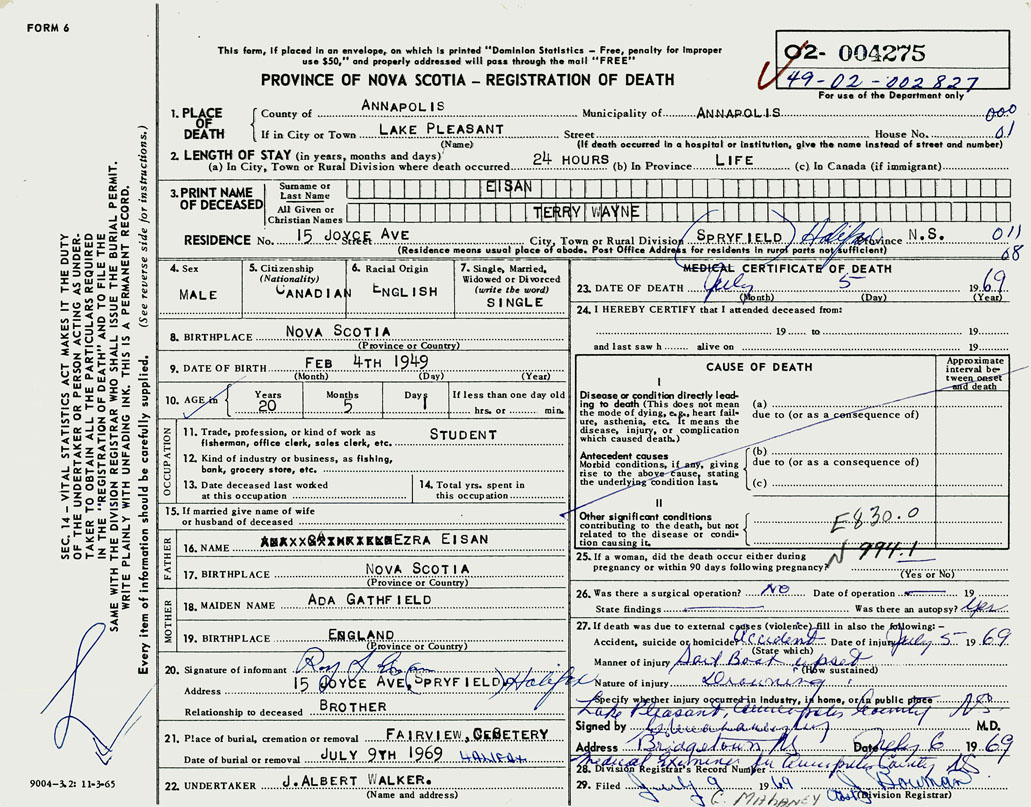 FORM 6
This form, if placed in an envelope, on which is printed "Dominion Statistics – Free, penalty for improper
use $50," and properly addressed will pass through the mail "FREE"
PROVINCE OF NOVA SCOTIA – REGISTRATION OF DEATH
02- 004275
49-02-002827
For use of the Department only
1. PLACE OF DEATH
County of ANNAPOLIS Municipality of ANNAPOLIS 000
If in City or Town LAKE PLEASANT Street House No. 01
(Name) (If death occurred in a hospital or institution, give the name instead of street and number)
2. LENGTH OF STAY (in years, months and days)
(a) In City, Town or Rural Division where death occurred 24 HOURS (b) In Province LIFE (c) In Canada (if immigrant)
3. PRINT NAME OF DECEASED
Surname or Last Name EISAN
All Given or Christian Names TERRY WAYNE
RESIDENCE No. 15 JOYCE AVE Street City, Town or Rural Division SPRYFIELD Halifax Province N.S. 011
(Residence means usual place of abode. Post Office Address for residents in rural parts not sufficient) 68
4. Sex MALE
5. Citizenship (Nationality) CANADIAN
6. Racial Origin ENGLISH
7. Single, Married, Widowed or Divorced (write the word) SINGLE
8. BIRTHPLACE NOVA SCOTIA
(Province or Country)
9. DATE OF BIRTH FEB 4TH 1949
(Month) (Day) (Year)
10. AGE in Years 20 Months 5 Days 1 If less than one day old
hrs. or min.
OCCUPATION
11. Trade, profession, or kind of work as fisherman, office clerk, sales clerk, etc. STUDENT
12. Kind of industry or business, as fishing, bank, grocery store, etc.
13. Date deceased last worked at this occupation
14. Total yrs. spent in this occupation
15. If married give name of wife or husband of deceased
FATHER
16. NAME EZRA EISAN
17. BIRTHPLACE NOVA SCOTIA
(Province or Country)
MOTHER
18. MAIDEN NAME ADA GATHFIELD
19. BIRTHPLACE ENGLAND
(Province or Country)
20. Signature of informant Roy
Address 15 JOYCE AVE, (SPRYFIELD) Halifax
Relationship to deceased BROTHER
21. Place of burial, cremation or removal FAIRVIEW, CEMETERY
Date of burial or removal JULY 9TH 1969 HALIFAX
22. UNDERTAKER J. ALBERT WALKER.
(Name and address)
MEDICAL CERTIFICATE OF DEATH
23. DATE OF DEATH July 5 1969
(Month) (Day) (Year)
24. I HEREBY CERTIFY that I attended deceased from:
19 to 19
and last saw h alive on 19
CAUSE OF DEATH
Approximate interval between onset and death
I
Disease or condition directly leading to death (This does not mean the mode of dying, e.g., heart failure, asthenia, etc. It means the disease, injury, or complication which caused death.)
(a)
due to (or as a consequence of)
Antecedent causes
Morbid conditions, if any, giving rise to the above cause, stating the underlying condition last.
(b)
due to (or as a consequence of)
(c)
II
Other significant conditions contributing to the death, but not related to the disease or condition causing it.
E830.0
N 994.1
25. If a woman, did the death occur either during pregnancy or within 90 days following pregnancy?
(Yes or No)
26. Was there a surgical operation? NO Date of operation 19
State findings Was there an autopsy? Yes
27. If death was due to external causes (violence) fill in also the following:–
Accident, suicide or homicide? Accident Date of injury July 5 1969
(State which)
Manner of injury Sail Boat upset
(How sustained)
Nature of injury Drowning
Specify whether injury occurred in industry, in home, or in public place
Lake Pleasant, Annapolis County NS
Signed by M.D.
Address Bridgetown NS Date July 6 1969
Medical Examiner for Annapolis County NS
28. Division Registrar's Record Number
29. Filed July 9 1969 J. Bowman
C. MAHANEY (Division Registrar)
SEC. 14 – VITAL STATISTICS ACT MAKES IT THE DUTY
OF THE UNDERTAKER OR PERSON ACTING AS UNDER-
TAKER TO OBTAIN ALL THE PARTICULARS REQUIRED
IN THE "REGISTRATION OF DEATH" AND TO FILE THE
SAME WITH THE DIVISION REGISTRAR WHO SHALL ISSUE THE BURIAL PERMIT.
WRITE PLAINLY WITH UNFADING INK. THIS IS A PERMANENT RECORD.
Every item of information should be carefully supplied. (See reverse side for instructions.)
9004-3.2: 11-3-65